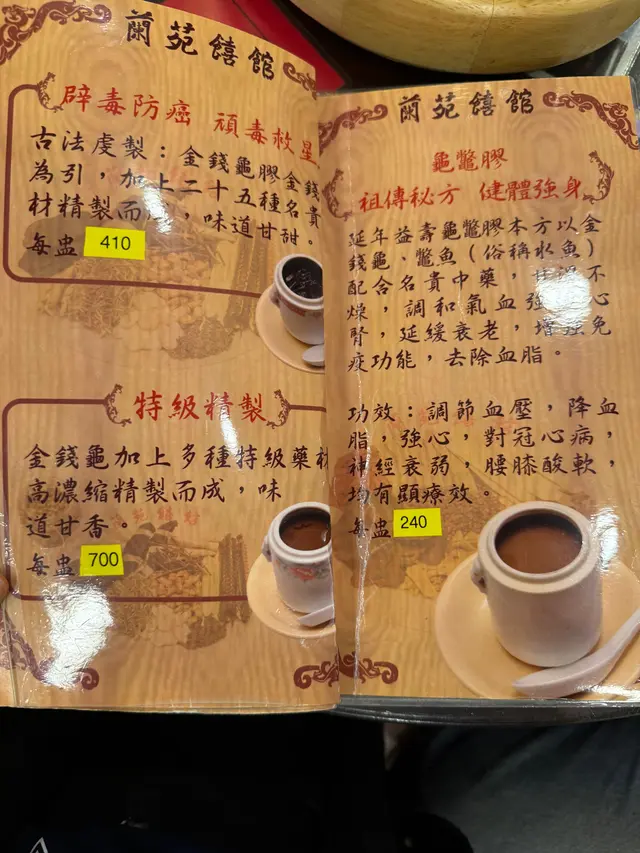 蘭苑饎館
辟毒防癌 頑毒救星
古法虔製：金錢龜膠金錢
為引，加上二十五種名貴
材精製而成，味道甘甜。
每盅 410
特級精製
金錢龜加上多種特級藥材
高濃縮精製而成，味
道甘香。
每盅 700
蘭苑饎館
龜鱉膠
祖傳秘方 健體強身
延年益壽龜鱉膠本方以金
錢龜、鱉魚（俗稱水魚）
配合名貴中藥，不
燥，調和氣血強心
腎，延緩衰老，增強免
疫功能，去除血脂。
功效：調節血壓，降血
脂，強心，對冠心病，
神經衰弱，腰膝酸軟，
均有顯療效。
每盅 240